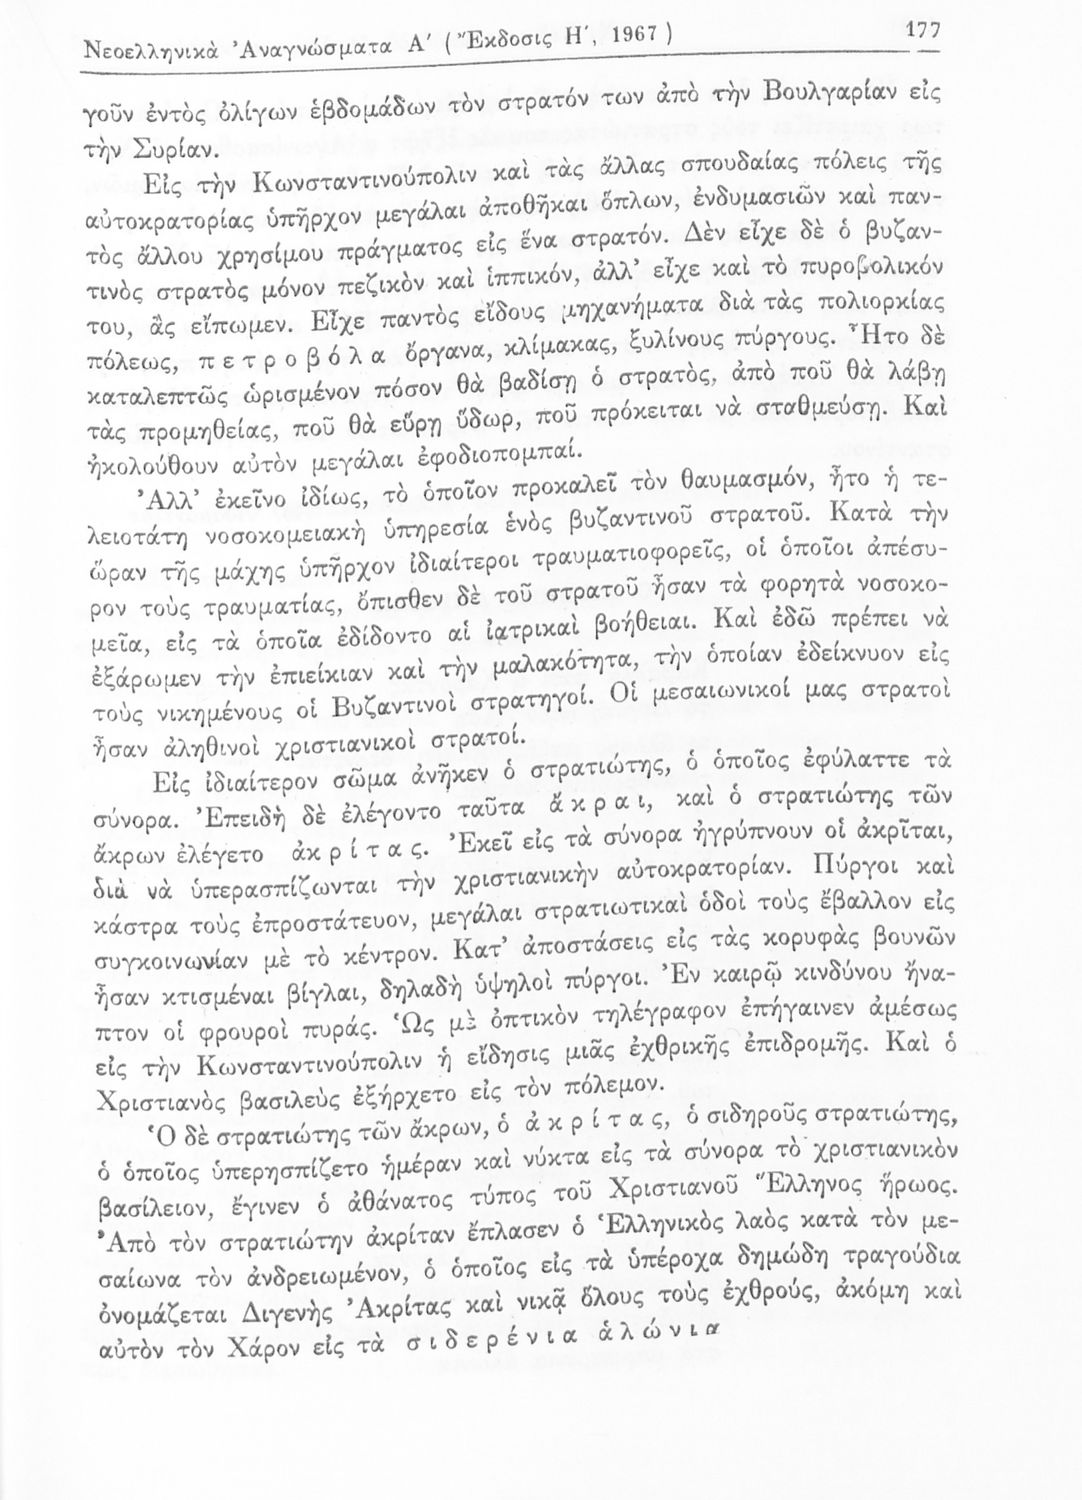 Νεοελληνικὰ Ἀναγνώσματα Α΄ (Ἔκδοσις Η΄, 1967)
177
γοῦν ἐντὸς ὀλίγων ἑβδομάδων τὸν στρατόν των ἀπὸ τὴν Βουλγαρίαν εἰς
τὴν Συρίαν.
Εἰς τὴν Κωνσταντινούπολιν καὶ τὰς ἄλλας σπουδαίας πόλεις τῆς
αὐτοκρατορίας ὑπῆρχον μεγάλαι ἀποθῆκαι ὅπλων, ἐνδυμασιῶν καὶ παν-
τὸς ἄλλου χρησίμου πράγματος εἰς ἕνα στρατόν. Δὲν εἶχε δὲ ὁ βυζαν-
τινὸς στρατὸς μόνον πεζικὸν καὶ ἱππικόν, ἀλλ' εἶχε καὶ τὸ πυροβολικόν
του, ἂς εἴπωμεν. Εἶχε παντὸς εἴδους μηχανήματα διὰ τὰς πολιορκίας
πόλεως, π ε τ ρ ο β ό λ α ὄργανα, κλίμακας, ξυλίνους πύργους. Ἦτο δὲ
καταλεπτῶς ὡρισμένον πόσον θὰ βαδίσῃ ὁ στρατὸς, ἀπὸ ποῦ θὰ λάβῃ
τὰς προμηθείας, ποῦ θὰ εὕρῃ ὕδωρ, ποῦ πρόκειται νὰ σταθμεύσῃ. Καὶ
ἠκολούθουν αὐτὸν μεγάλαι ἐφοδιοπομπαί.
Ἀλλ' ἐκεῖνο ἰδίως, τὸ ὁποῖον προκαλεῖ τὸν θαυμασμόν, ἦτο ἡ τε-
λειοτάτη νοσοκομειακὴ ὑπηρεσία ἑνὸς βυζαντινοῦ στρατοῦ. Κατὰ τὴν
ὥραν τῆς μάχης ὑπῆρχον ἰδιαίτεροι τραυματιοφορεῖς, οἱ ὁποῖοι ἀπέσυ-
ρον τοὺς τραυματίας, ὄπισθεν δὲ τοῦ στρατοῦ ἦσαν τὰ φορητὰ νοσοκο-
μεῖα, εἰς τὰ ὁποῖα ἐδίδοντο αἱ ἰατρικαὶ βοήθειαι. Καὶ ἐδῶ πρέπει νὰ
ἐξάρωμεν τὴν ἐπιείκιαν καὶ τὴν μαλακότητα, τὴν ὁποίαν ἐδείκνυον εἰς
τοὺς νικημένους οἱ Βυζαντινοὶ στρατηγοί. Οἱ μεσαιωνικοί μας στρατοὶ
ἦσαν ἀληθινοὶ χριστιανικοὶ στρατοί.
Εἰς ἰδιαίτερον σῶμα ἀνῆκεν ὁ στρατιώτης, ὁ ὁποῖος ἐφύλαττε τὰ
σύνορα. Ἐπειδὴ δὲ ἐλέγοντο ταῦτα ἄ κ ρ α ι, καὶ ὁ στρατιώτης τῶν
ἄκρων ἐλέγετο ἀ κ ρ ί τ α ς. Ἐκεῖ εἰς τὰ σύνορα ἠγρύπνουν οἱ ἀκρῖται,
διὰ νὰ ὑπερασπίζωνται τὴν χριστιανικὴν αὐτοκρατορίαν. Πύργοι καὶ
κάστρα τοὺς ἐπροστάτευον, μεγάλαι στρατιωτικαὶ ὁδοὶ τοὺς ἔβαλλον εἰς
συγκοινωνίαν μὲ τὸ κέντρον. Κατ' ἀποστάσεις εἰς τὰς κορυφὰς βουνῶν
ἦσαν κτισμέναι βίγλαι, δηλαδὴ ὑψηλοὶ πύργοι. Ἐν καιρῷ κινδύνου ἤνα-
πτον οἱ φρουροὶ πυράς. Ὡς μὲ ὀπτικὸν τηλέγραφον ἐπήγαινεν ἀμέσως
εἰς τὴν Κωνσταντινούπολιν ἡ εἴδησις μιᾶς ἐχθρικῆς ἐπιδρομῆς. Καὶ ὁ
Χριστιανὸς βασιλεὺς ἐξήρχετο εἰς τὸν πόλεμον.
Ὁ δὲ στρατιώτης τῶν ἄκρων, ὁ ἀ κ ρ ί τ α ς, ὁ σιδηροῦς στρατιώτης,
ὁ ὁποῖος ὑπερησπίζετο ἡμέραν καὶ νύκτα εἰς τὰ σύνορα τὸ χριστιανικὸν
βασίλειον, ἔγινεν ὁ ἀθάνατος τύπος τοῦ Χριστιανοῦ Ἕλληνος ἥρωος.
Ἀπὸ τὸν στρατιώτην ἀκρίταν ἔπλασεν ὁ Ἑλληνικὸς λαὸς κατὰ τὸν με-
σαίωνα τὸν ἀνδρειωμένον, ὁ ὁποῖος εἰς τὰ ὑπέροχα δημώδη τραγούδια
ὀνομάζεται Διγενὴς Ἀκρίτας καὶ νικᾷ ὅλους τοὺς ἐχθρούς, ἀκόμη καὶ
αὐτὸν τὸν Χάρον εἰς τὰ σ ι δ ε ρ έ ν ι α ἁ λ ώ ν ι α